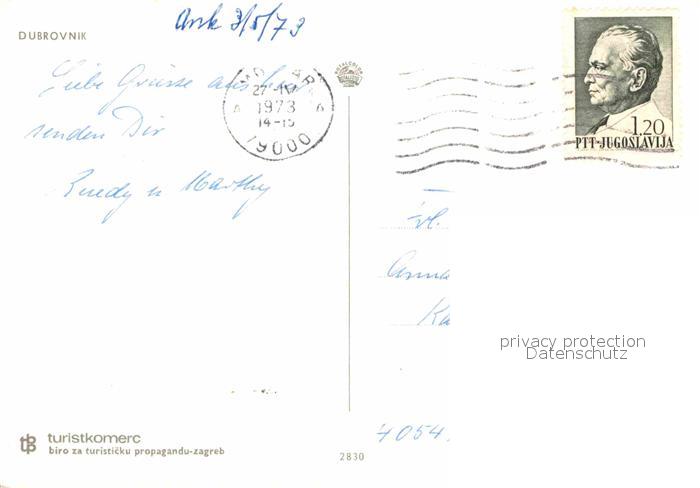 Ank 3/5/73
DUBROVNIK
Liebe Grüsse aus hier
senden Dir
Ruedy u Marthy
27-IV
1973
14-15
79000
1.20
PTT-JUGOSLAVIJA
Frl.
Anna
Ka
privacy protection
Datenschutz
4054.
turistkomerc
biro za turističku propagandu-zagreb
2830